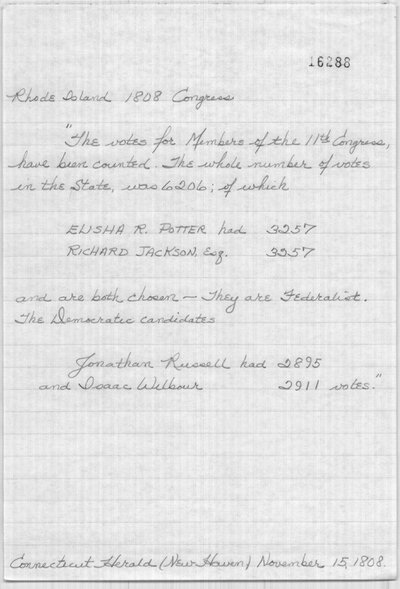 16288
Rhode Island 1808 Congress
"The votes for Members of the 11th Congress,
have been counted. The whole number of votes
in the State, was 6206; of which
ELISHA R. POTTER had 3257
RICHARD JACKSON, Esq. 3257
and are both chosen — They are Federalist.
The Democratic candidates
Jonathan Russell had 2895
and Isaac Wilbour 2911 votes."
Connecticut Herald (New Haven) November 15, 1808.